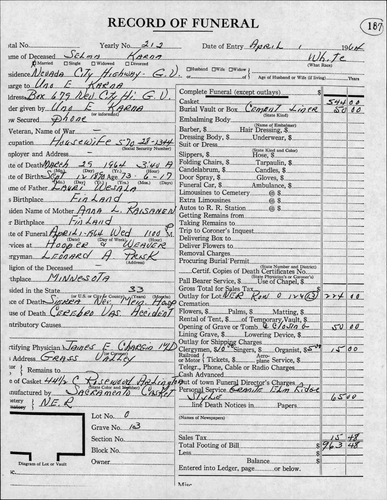 RECORD OF FUNERAL
167
Yearly No. 212
Date of Entry April 1 1964
of Deceased Selma Karna
White
Married Single Widowed Divorced
(What Race)
Nevada City Highway - G.V.
Husband Wife Widow
Age of Husband or Wife (if living)
Charge to Uno E Karna
Address Box 679 Nev City Hi. G.V.
Order given by Uno E Karna
(or informant)
Secured Phone
Veteran, Name of War -
Housewife 570-28-1344
(Social Security Number)
Employer and Address -
Death March 29 1964 3:40 A
of Birth 1890 73-6-17
of Father Lauri Wesala
Birthplace Finland
Maiden Name of Mother Anna L. Raisanen
Birthplace Finland
of Funeral April 1-1964 Wed 1100
Services at Hooper & Weaver
Clergyman Leonard A Pesk
Religion of the Deceased
Birthplace Minnesota
Resided in the State 33
of Death Sierra Nev. Mem Hosp
of Death Cerebro Vas. Accident
Contributory Causes
Certifying Physician James E Chargin MD
Address Grass Valley
Remains to
of Casket
Manufactured by Sacramento Casket
N.E.R.
Lot No. 0
Grave No. 103
Section No.
Block No.
Owner
Diagram of Lot or Vault
Complete Funeral (except outlays) $
Casket 544 00
Burial Vault or Box Cement Liner 50 00
(State Kind)
Embalming Body
Barber, $ Hair Dressing, $
Dressing Body, $ Underwear, $
Suit or Dress
(State Kind and Color)
Slippers, $ Hose, $
Folding Chairs, $ Tarpaulin, $
Candelabrum, $ Candles, $
Door Spray, $ Gloves, $
Funeral Car, $ Ambulance, $
Limousines to Cemetery @ $
Extra Limousines @ $
Autos to R. R. Station @ $
Getting Remains from
Taking Remains to
Trip to Coroner's Inquest
Delivering Box to
Deliver Flowers to
Removal Charges
Procuring Burial Permit
(State Number and District)
Certif. Copies of Death Certificates No.
Pall Bearer Service, $ Use of Chapel, $
Gross Total for Sales Tax $
Outlay for Lot NER Row 0 224 00
Cremation
Flowers, $ Palms, $ Matting, $
Rental of Tent, $ or Temporary Vault, $
Opening of Grave or Tomb & Closing 50 00
Lining Grave, $ Lowering Device, $
Outlay for Shipping Charges
Clergyman, 10 00 Singers, $ Organist, $ 5 00 15 00
Telegr., Phone, Cable or Radio Charges
Cash Advanced
Out of town Funeral Director's Charges
Personal Service Granite Elm Ridge
Style 65 00
line Death Notices in Papers
(Names of Newspapers)
Sales Tax 15 48
Total Footing of Bill $ 963 48
Less $
Balance $
Entered into Ledger, page or below.